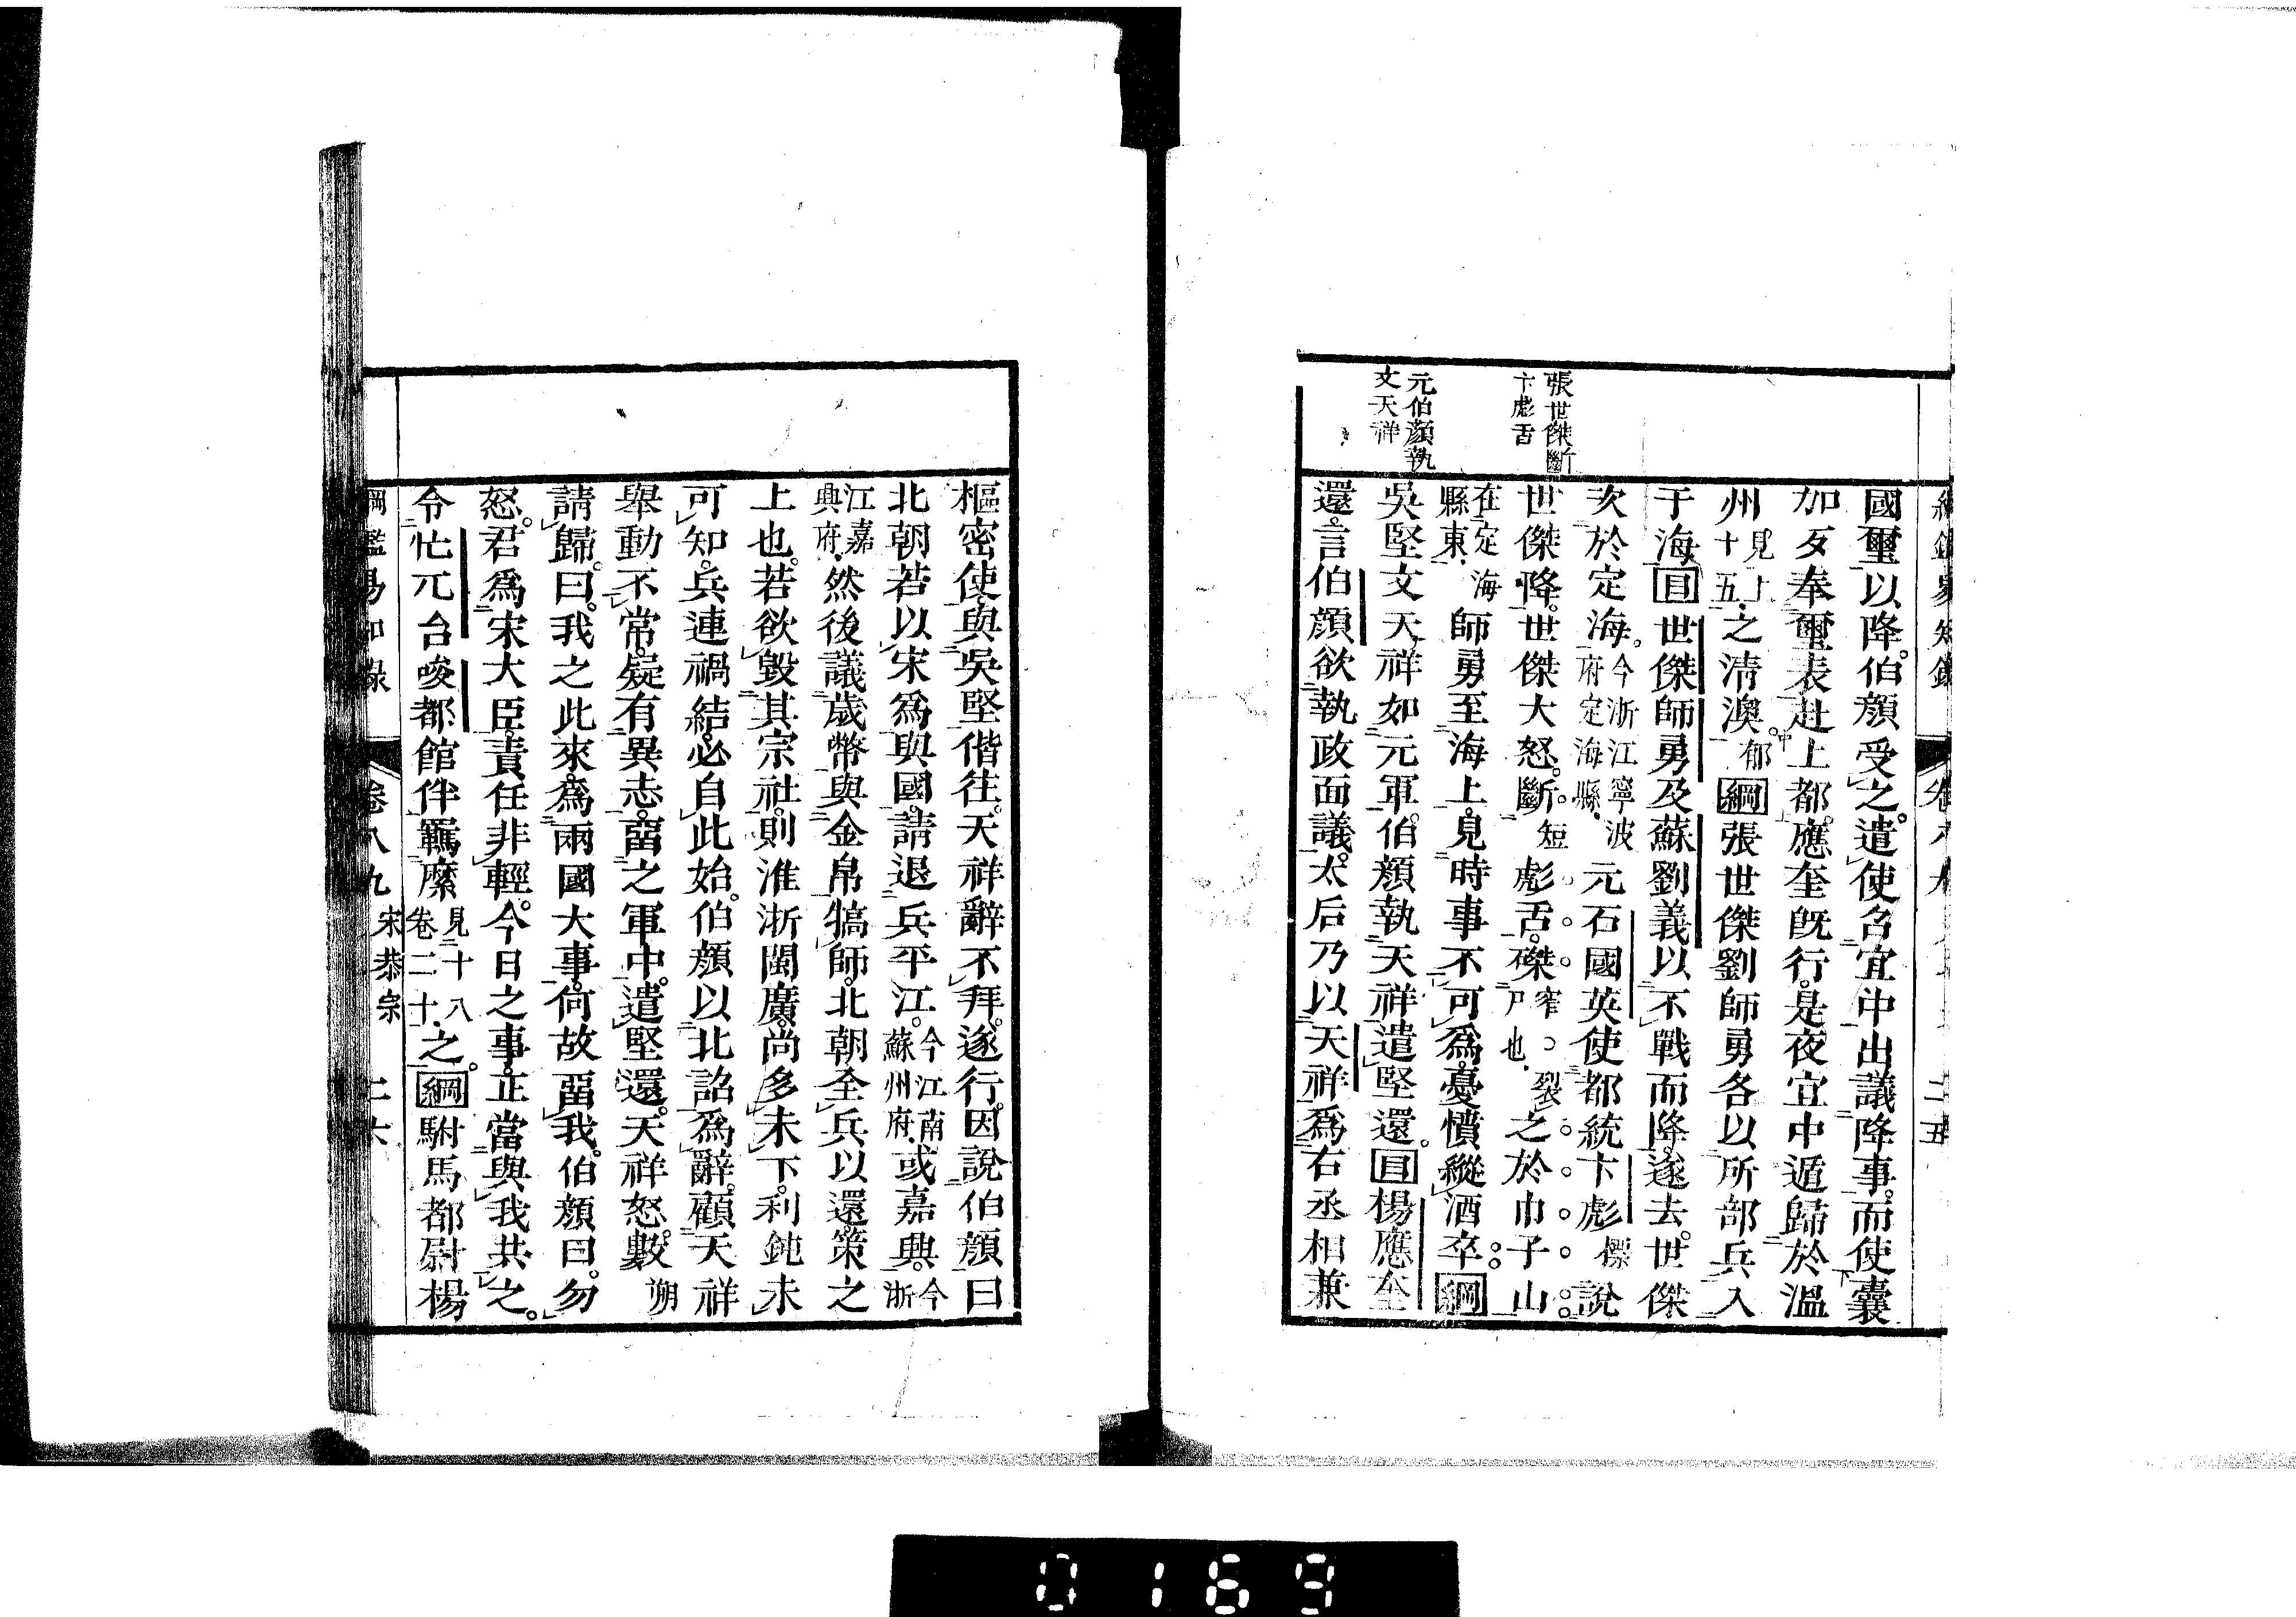 綱鑑易知錄 卷八九 二五
張世傑斷
卞彪舌
元伯顏執
文天祥
國璽以降。伯顏受之。遣使召宜中出議降事。而使囊
加歹奉璽表赴上都。應奎既行。是夜宜中遁歸於溫
州見上十五.之淸澳。郁綱張世傑劉師勇各以所部兵入
于海目世傑師勇及蘇劉義以不戰而降。遂去。世傑
次於定海。今浙江寧波府定海縣.元石國英使都統卞彪標說
世傑降。世傑大怒。斷短彪舌。磔窄尸也.裂之於巾子山
在定海縣東.海師勇至海上。見時事不可爲。憂憤縱酒卒。綱
吳堅文天祥如元軍。伯顏執天祥遣堅還。目楊應奎
還。言伯顏欲執政面議。太后乃以天祥爲右丞相兼
樞密使。與吳堅偕往。天祥辭不拜。遂行。因說伯顏曰
北朝若以宋爲與國。請退兵平江。今江南蘇州府.或嘉興。今浙
江嘉興府.然後議歲幣與金帛犒師。北朝全兵以還。策之
上也。若欲毀其宗社。則淮浙閩廣。尚多未下。利鈍未
可知。兵連禍結。必自此始。伯顏以北詔爲辭。顧天祥
舉動不常。疑有異志。畱之軍中。遣堅還。天祥怒。數朔
請歸。曰。我之此來。爲兩國大事。何故畱我。伯顏曰。勿
怒。君爲宋大臣。責任非輕。今日之事。正當與我共之。
令忙兀台唆都館伴羈縻見十八卷二十.之。綱駙馬都尉楊
綱鑑易知錄 卷八九 宋恭宗 二六
0169